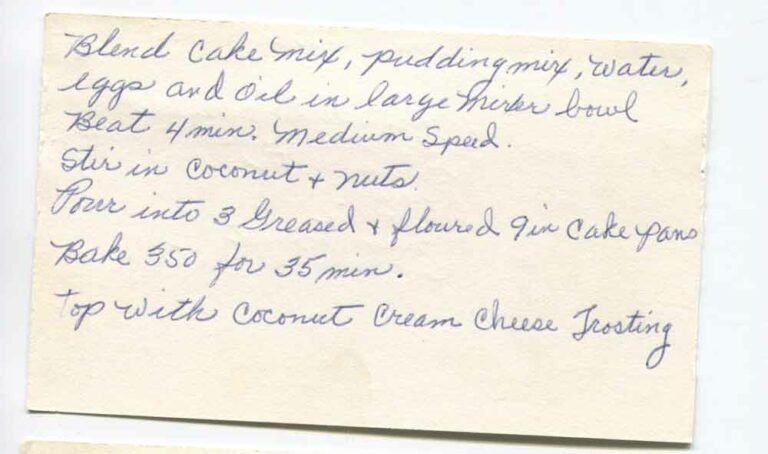 Blend Cake Mix, pudding mix, Water,
eggs and Oil in large Mixer bowl
Beat 4 min. Medium Speed.
Stir in Coconut + Nuts.
Pour into 3 Greased + floured 9 in Cake pans
Bake 350 for 35 min.
Top with Coconut Cream Cheese Frosting